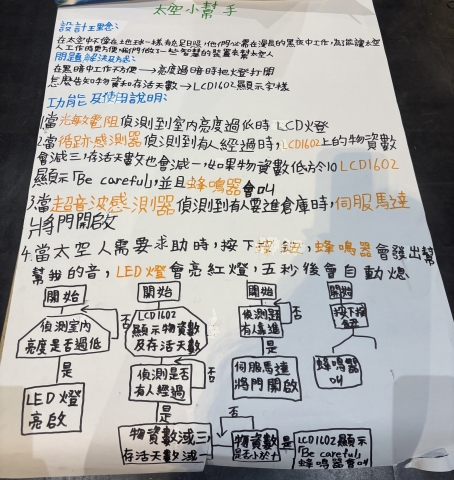 太空小幫手
設計理念:
在太空中不像在地球一樣有足夠日照,他們必需在漫長的黑夜中工作,為了能讓太空
人工作時更方便,我們做了一些智慧的裝置來幫太空人
問題解決及方法:
在黑暗中工作不方便→亮度過暗時把燈打開
怎麼告知物資和存活天數→LCD1602顯示字樣
功能及使用說明:
1.當光敏電阻偵測到室內亮度過低時LCD燈
2.當循跡感測器偵測到有人經過時,LCD1602上的物資數
會減三,存活天數也會減一,如果物資數低於10 LCD1602
顯示「Be careful」,並且蜂鳴器會叫
3.當超音波感測器偵測到有人要進倉庫時,伺服馬達
將門開啟
4.當太空人需要求助時,按下按鈕,蜂鳴器會發出幫
幫我的音,LED燈會亮紅燈,五秒後會自動熄
開始 開始 開始 開始
偵測室內
亮度是否過低
否
是
LED燈
亮啟
LCD1602
顯示物資數
及存活天數
偵測是否
有人經過
否
是
物資數減三
存活天數減一
物資數
是否小於十
否
是
LCD1602顯示
「Be careful」
蜂鳴器會叫
偵測是否
有人靠近
否
是
伺服馬達
將門開啟
按下按
鈕
蜂鳴器
叫